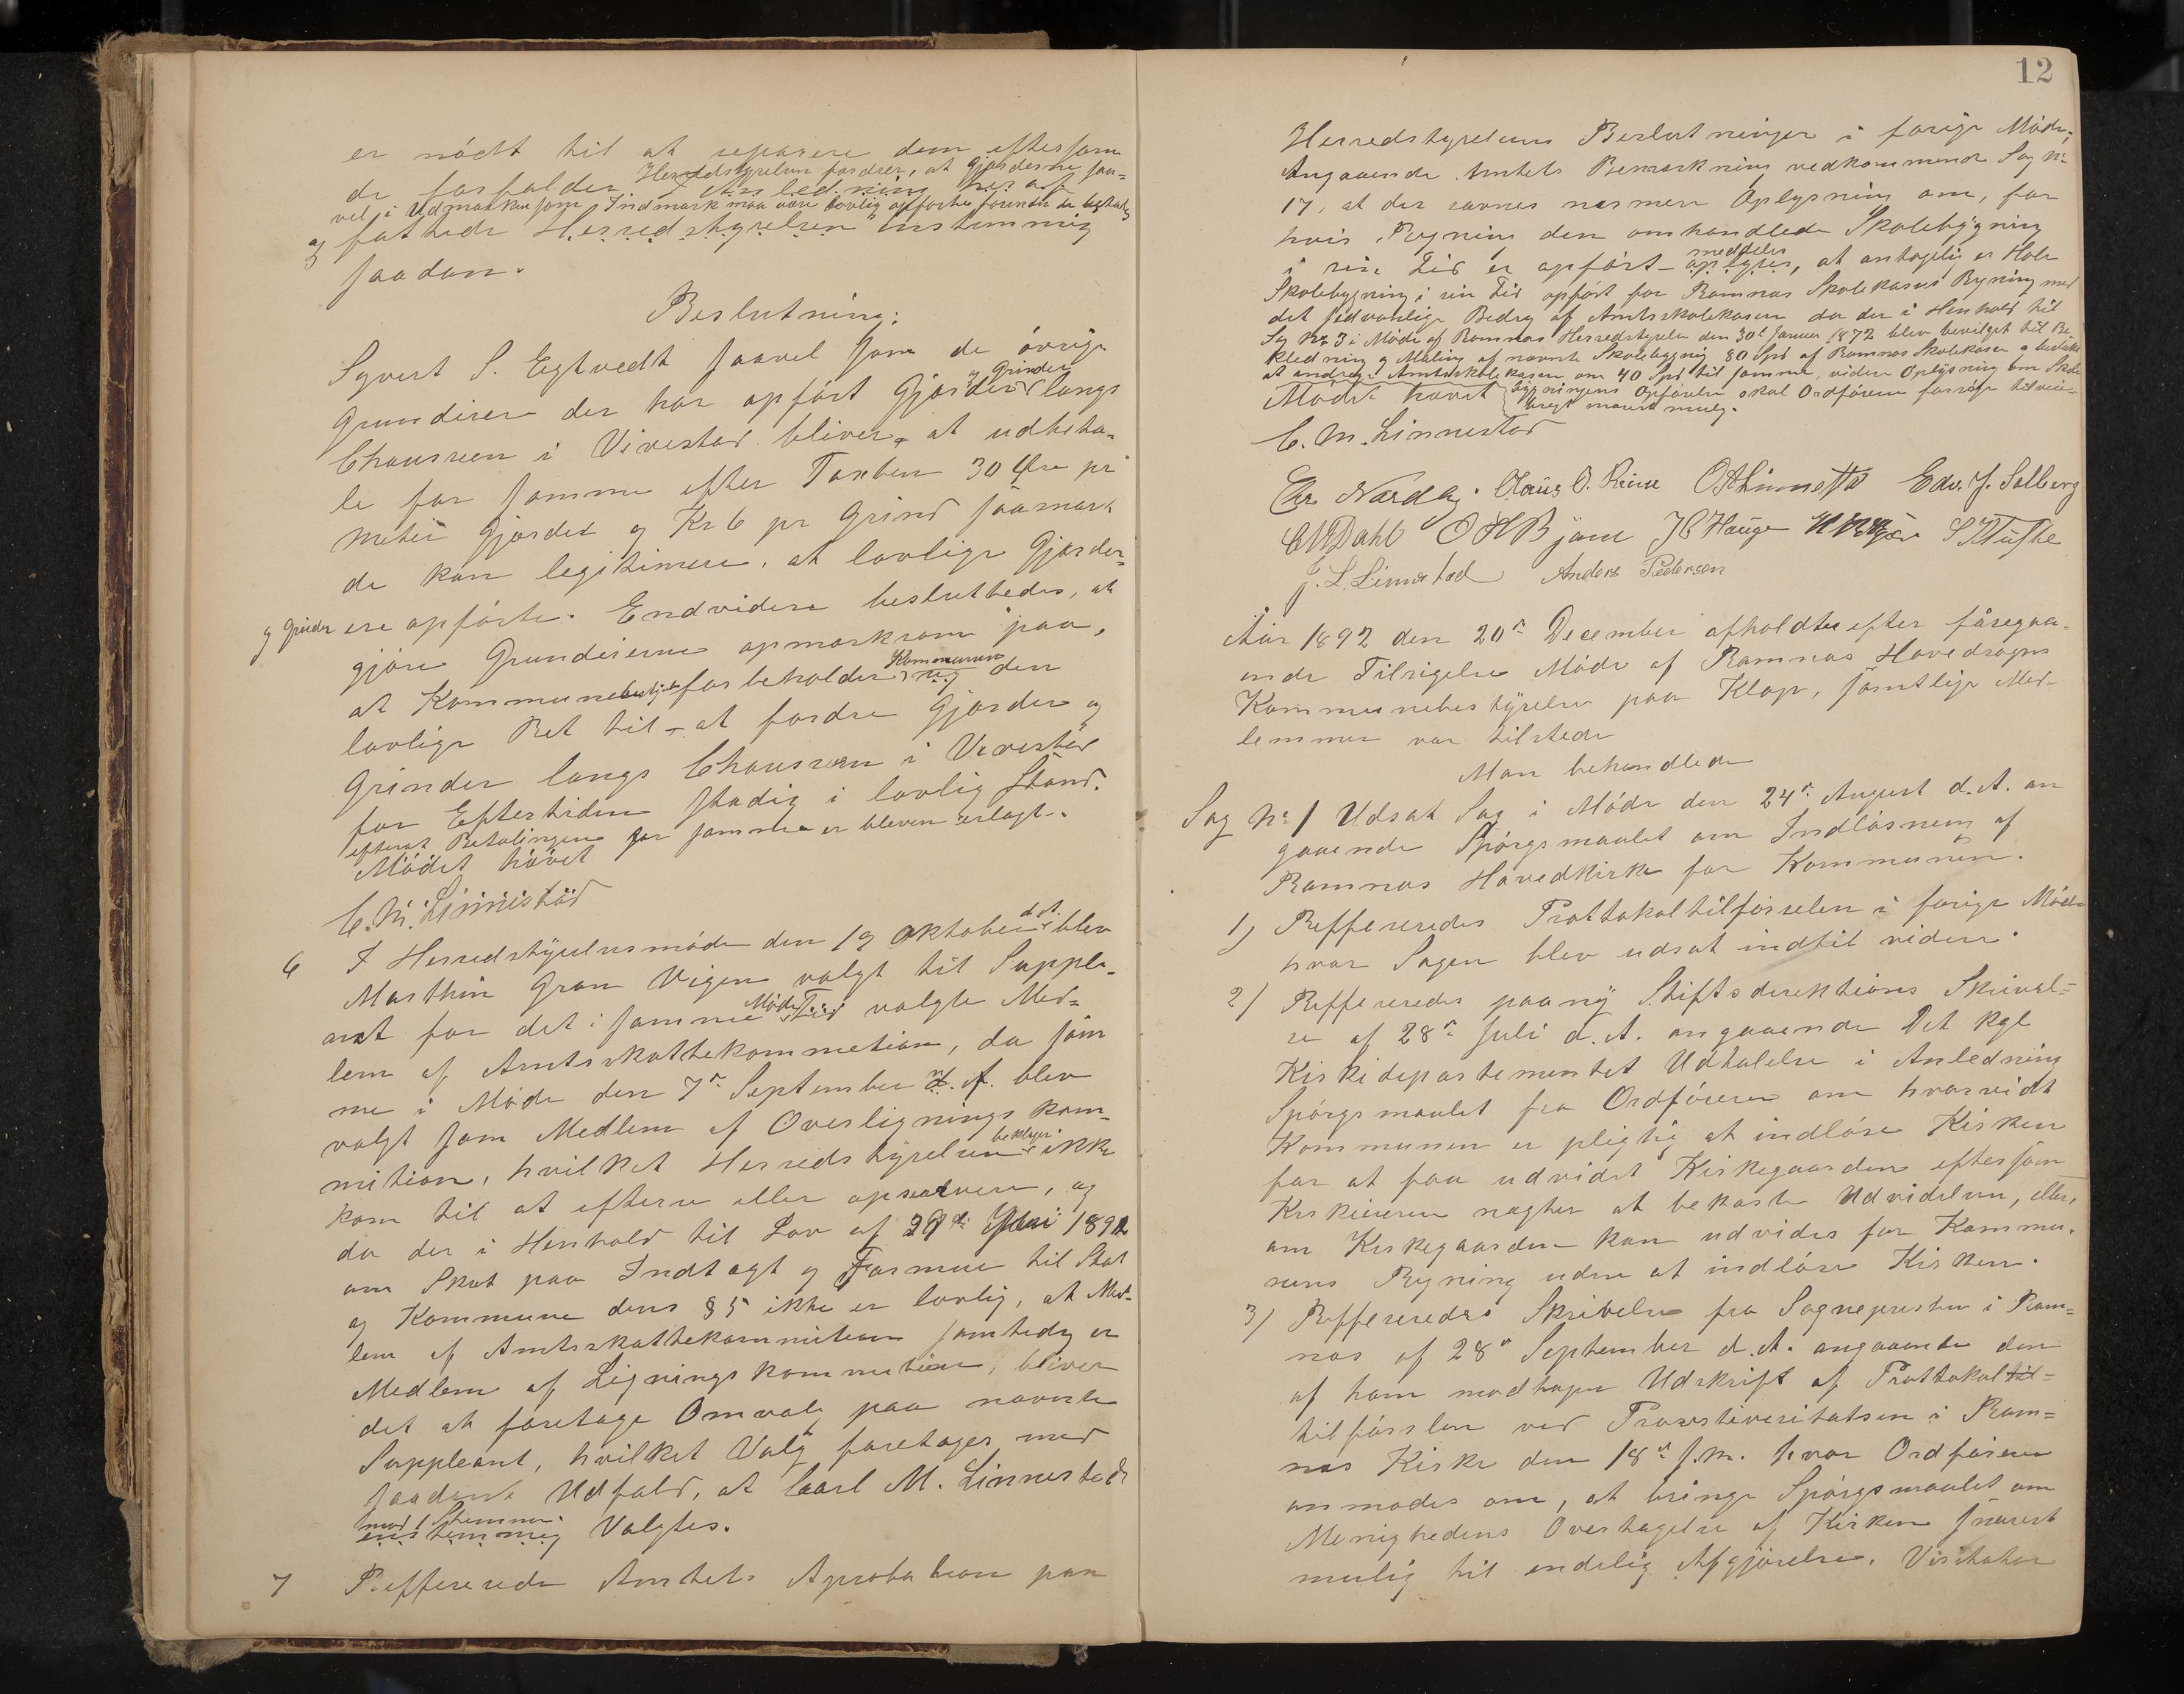 er nödt til at reparere dem eftersom
Herredstyrelsen fordrer, at Gjærderne saa=
de forfalder. I Anledning heraf
vel i Udmarken som Indmark maa være lovlig opførte forinden de
og fattede Herredstyrelsen enstemmig
saadan.
Beslutning:
Syvert S. Egtvedt saavel som de övrige
og Grinder
Grundeiere der har opført Gjærder langs
Chausseen i Virestad bliver at udbeta-
le for samme efter Taxten 30 Øre pr
meter Gjærdet og Kr 6 pr Grind saasnart
de kan legitimere, at lovlige Gjærder
og Grinder ere opførte. Endvidere besluttedes, at
gjöre Grundeierne opmærksom paa,
Kommunen
at Kommunebestyr forbeholder sig den
lovlige Ret til at fordre Gjærder og
Grinder langs Chausseen i Virestad
for Eftertiden stadig i lovlig Stand.
efterat Betalingen for samme er bleven erlagt.
Mödet hævet
C. M. Linnestad
6 I Herredstyrelsesmöde den 19 Oktober d. A. blev
Marthin Gran Vigen valgt til Supple-
ant for det i samme Möde valgte Med=
lem af Amtsskattekommetion, da sam
me i Möde den 7de September d. A. blev
valgt som Medlem af Overlignings kom-
mition, hvilket Herredstyrelsen beklager ikke
kom til at eftersee eller opservere, og
da der i Henhold til Lov af 29de Juni 1892
om Skat paa Indtægt og Formue til Stat
og Kommune dens § 5 ikke er lovlig, at Med-
lem af Amtsskattekommition samtidig er
Medlem af Ligningskommition, bliver
det at foretage Omvalg paa nævnte
Suppleant, hvilket Valg foretages med
saadant Udfald, at Carl M. Linnestad
med 1 Stemmer.
enstemmig Valgtes.
7 Reffererede Amtets Aprobation paa
12
Herredstyrelsens Beslutninger i forige Möde,
Angaaende Amtets Bemærkning vedkommende Sag No
17, at der savnes nærmere Oplysning om, for
hvis Regning den omhandlede Skolebygning
meddeles
i sin Tid er opført oplyses, at antagelig er Holm
Skolebygning i sin Tid opført for Ramnæs Skolekasses Regning med
det sedvanlige Bedrag af Amtsskolekassen da der i Henhold til
Sag No 3 i Möde af Ramnæs Herredstyrelse den 30te Januar 1872 blev bevilget til Be
klædning og Maling af nævnte Skolebygning 80 Spd af Ramnæs Skolekasse og besluttet
at andrage Amtsskolekassen om 40 Spd til samme, videre Oplysning om Skole
Mödet hævet bygningens Opförelse skal Ordföreren forsøge tilveie-
bragt snarest mulig.
C. M. Linnestad
Chr Nordby. Claus O. Riise O A Linnestad Edv. J. Solberg
C M Dahl O H Bjane J C Hauge S K Tufte
J. L. Linnestad Anders Pedersen
Aar 1892 den 20de December afholdtes efter foregaa-
ende Tilsigelse Möde af Ramnæs Hovedsogns
Kommunebestyrelse paa Klop, samtlige Med-
lemmer var tilstede
Man behandlede
Sag No 1 Udsat Sag i Möde den 24de August d. A. an
gaaende Spörgsmaalet om Indlösning af
Ramnæs Hovedkirke for Kommunen.
1) Reffereredes Prottokoltilförselen i forige Möde
hvor Sagen blev udsat indtil videre.
2) Reffereredes paany Stiftsdirektions Skrivel=
se af 28de Juli d. A. angaaende Det kgl
Kirkedepartementet Udtalelse i Anledning
Spörgsmaalet fra Ordföreren om hvorvidt
Kommunen er pligtig at indlöse Kirken
for at faa udvidet Kirkegaarden eftersom
Kirkeieren nægter at bekoste Udvidelsen, eller,
om Kirkegaarden kan udvides for Kommu-
nens Regning uden at indlöse Kirken.
3) Reffereredes Skrivelse fra Sognepresten i Ram=
næs af 28de September d. A. angaaende den
af ham modtagne Udskrift af Prottokoltil=
tilförslen ved Prostevisitatsen i Ram=
næs Kirke den 18de s. m. hvor Ordföreren
anmodes om, at bringe Spörgsmaalet om
Menighedens Overtagelse af Kirken snarest
mulig til endelig Afgjörelse. Visitator